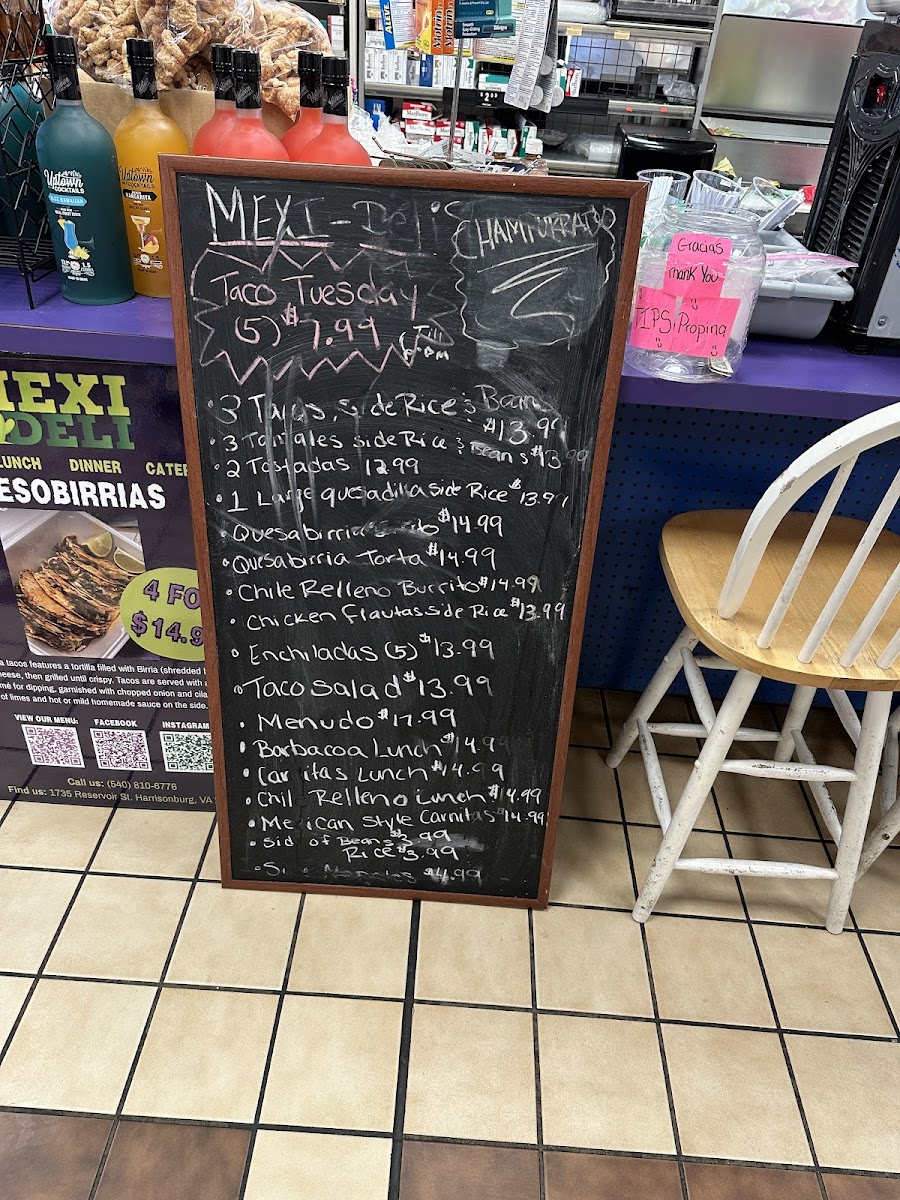 MEXI-Deli
CHAMPURRADO
Taco Tuesday
(5) $7.99
• 3 Tacos, side Rice &
$13.99
• 3 Tamales side Rice & Beans $13.99
• 2 Tostadas 12.99
• 1 Large quesadilla side Rice $13.99
• Quesabirria $14.99
• Quesabirria Torta $14.99
• Chile Relleno Burrito $14.99
• Chicken Flautas side Rice $13.99
• Enchiladas (5) $13.99
• Taco Salad $13.99
• Menudo $17.99
• Barbacoa Lunch $14.99
• Car itas Lunch $14.99
• Chil Relleno Lunch $14.99
• Me ican Style Carnitas $14.99
• Sid of Beans $3.99
Rice $3.99
$4.99
Uptown
COCKTAILS
Uptown
COCKTAILS
MARGARITA
ALEVE
Motrin
Marlboro
Gracias
Thank You
TIPS/Proping
MEXI
DELI
LUNCH DINNER CATE
ESOBIRRIAS
4 FO
$14.9
a tacos features a tortilla filled with Birria (shredded b
eese, then grilled until crispy. Tacos are served with
me for dipping, garnished with chopped onion and cila
of limes and hot or mild homemade sauce on the side.
VIEW OUR MENU: FACEBOOK INSTAGRAM
Call us: (540) 810-6776
Find us: 1735 Reservoir St. Harrisonburg, VA